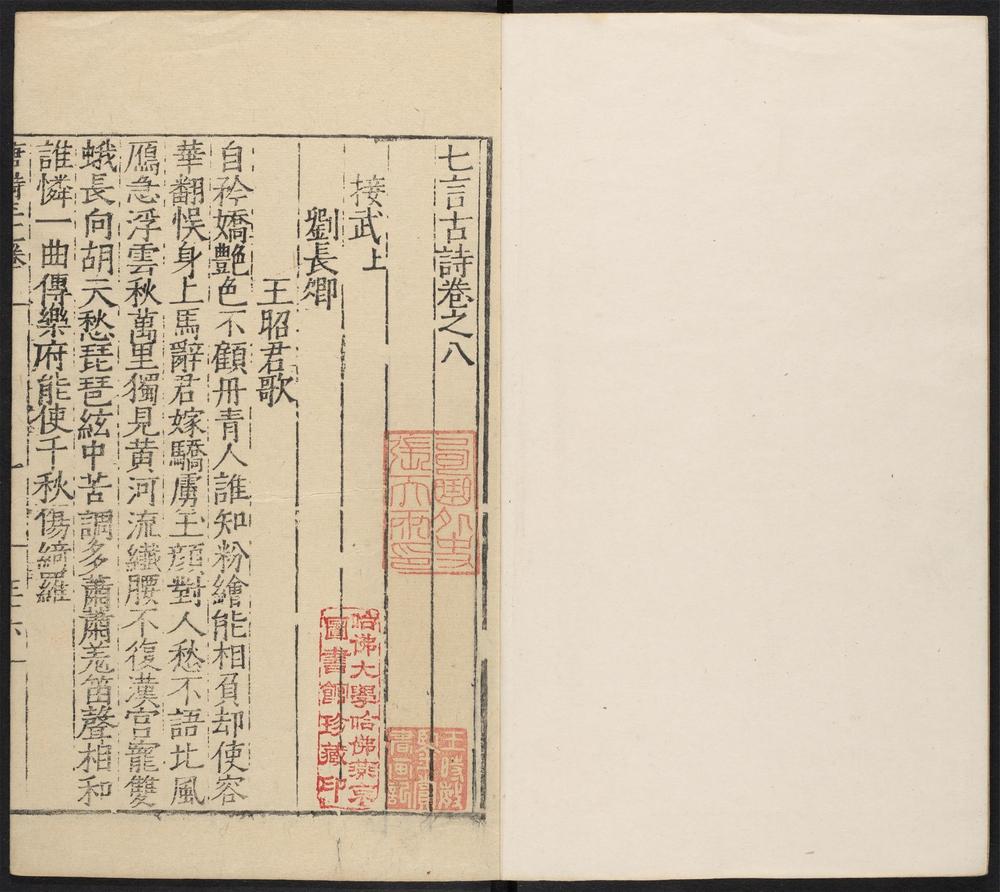 七言古詩卷之八
接武上
劉長卿
王昭君歌
自矜嬌艶色不顧丹青人誰知粉繪能相負却使容
華翻悮身上馬辭君嫁驕虜玉顔對人愁不語北風
鴈急浮雲秋萬里獨見黄河流纖腰不復漢宫寵雙
蛾長向胡天愁琵琶絃中苦調多蕭蕭羗笛聲相和
誰憐一曲傳樂府能使千秋傷綺羅
哈佛大學哈佛燕京
圖書館珍藏印